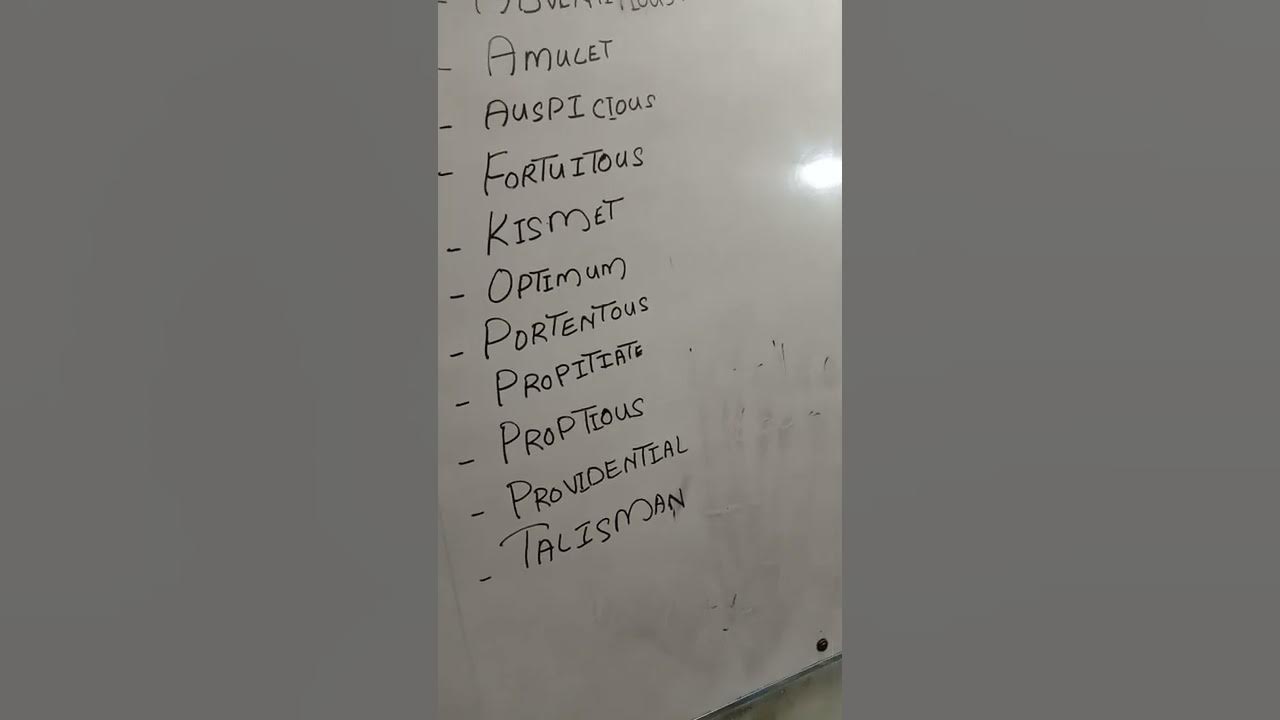 - ADVENTITIOUS
- AMULET
- AUSPICIOUS
- FORTUITOUS
- KISMET
- OPTIMUM
- PORTENTOUS
- PROPITIATE
- PROPTIOUS
- PROVIDENTIAL
- TALISMAN